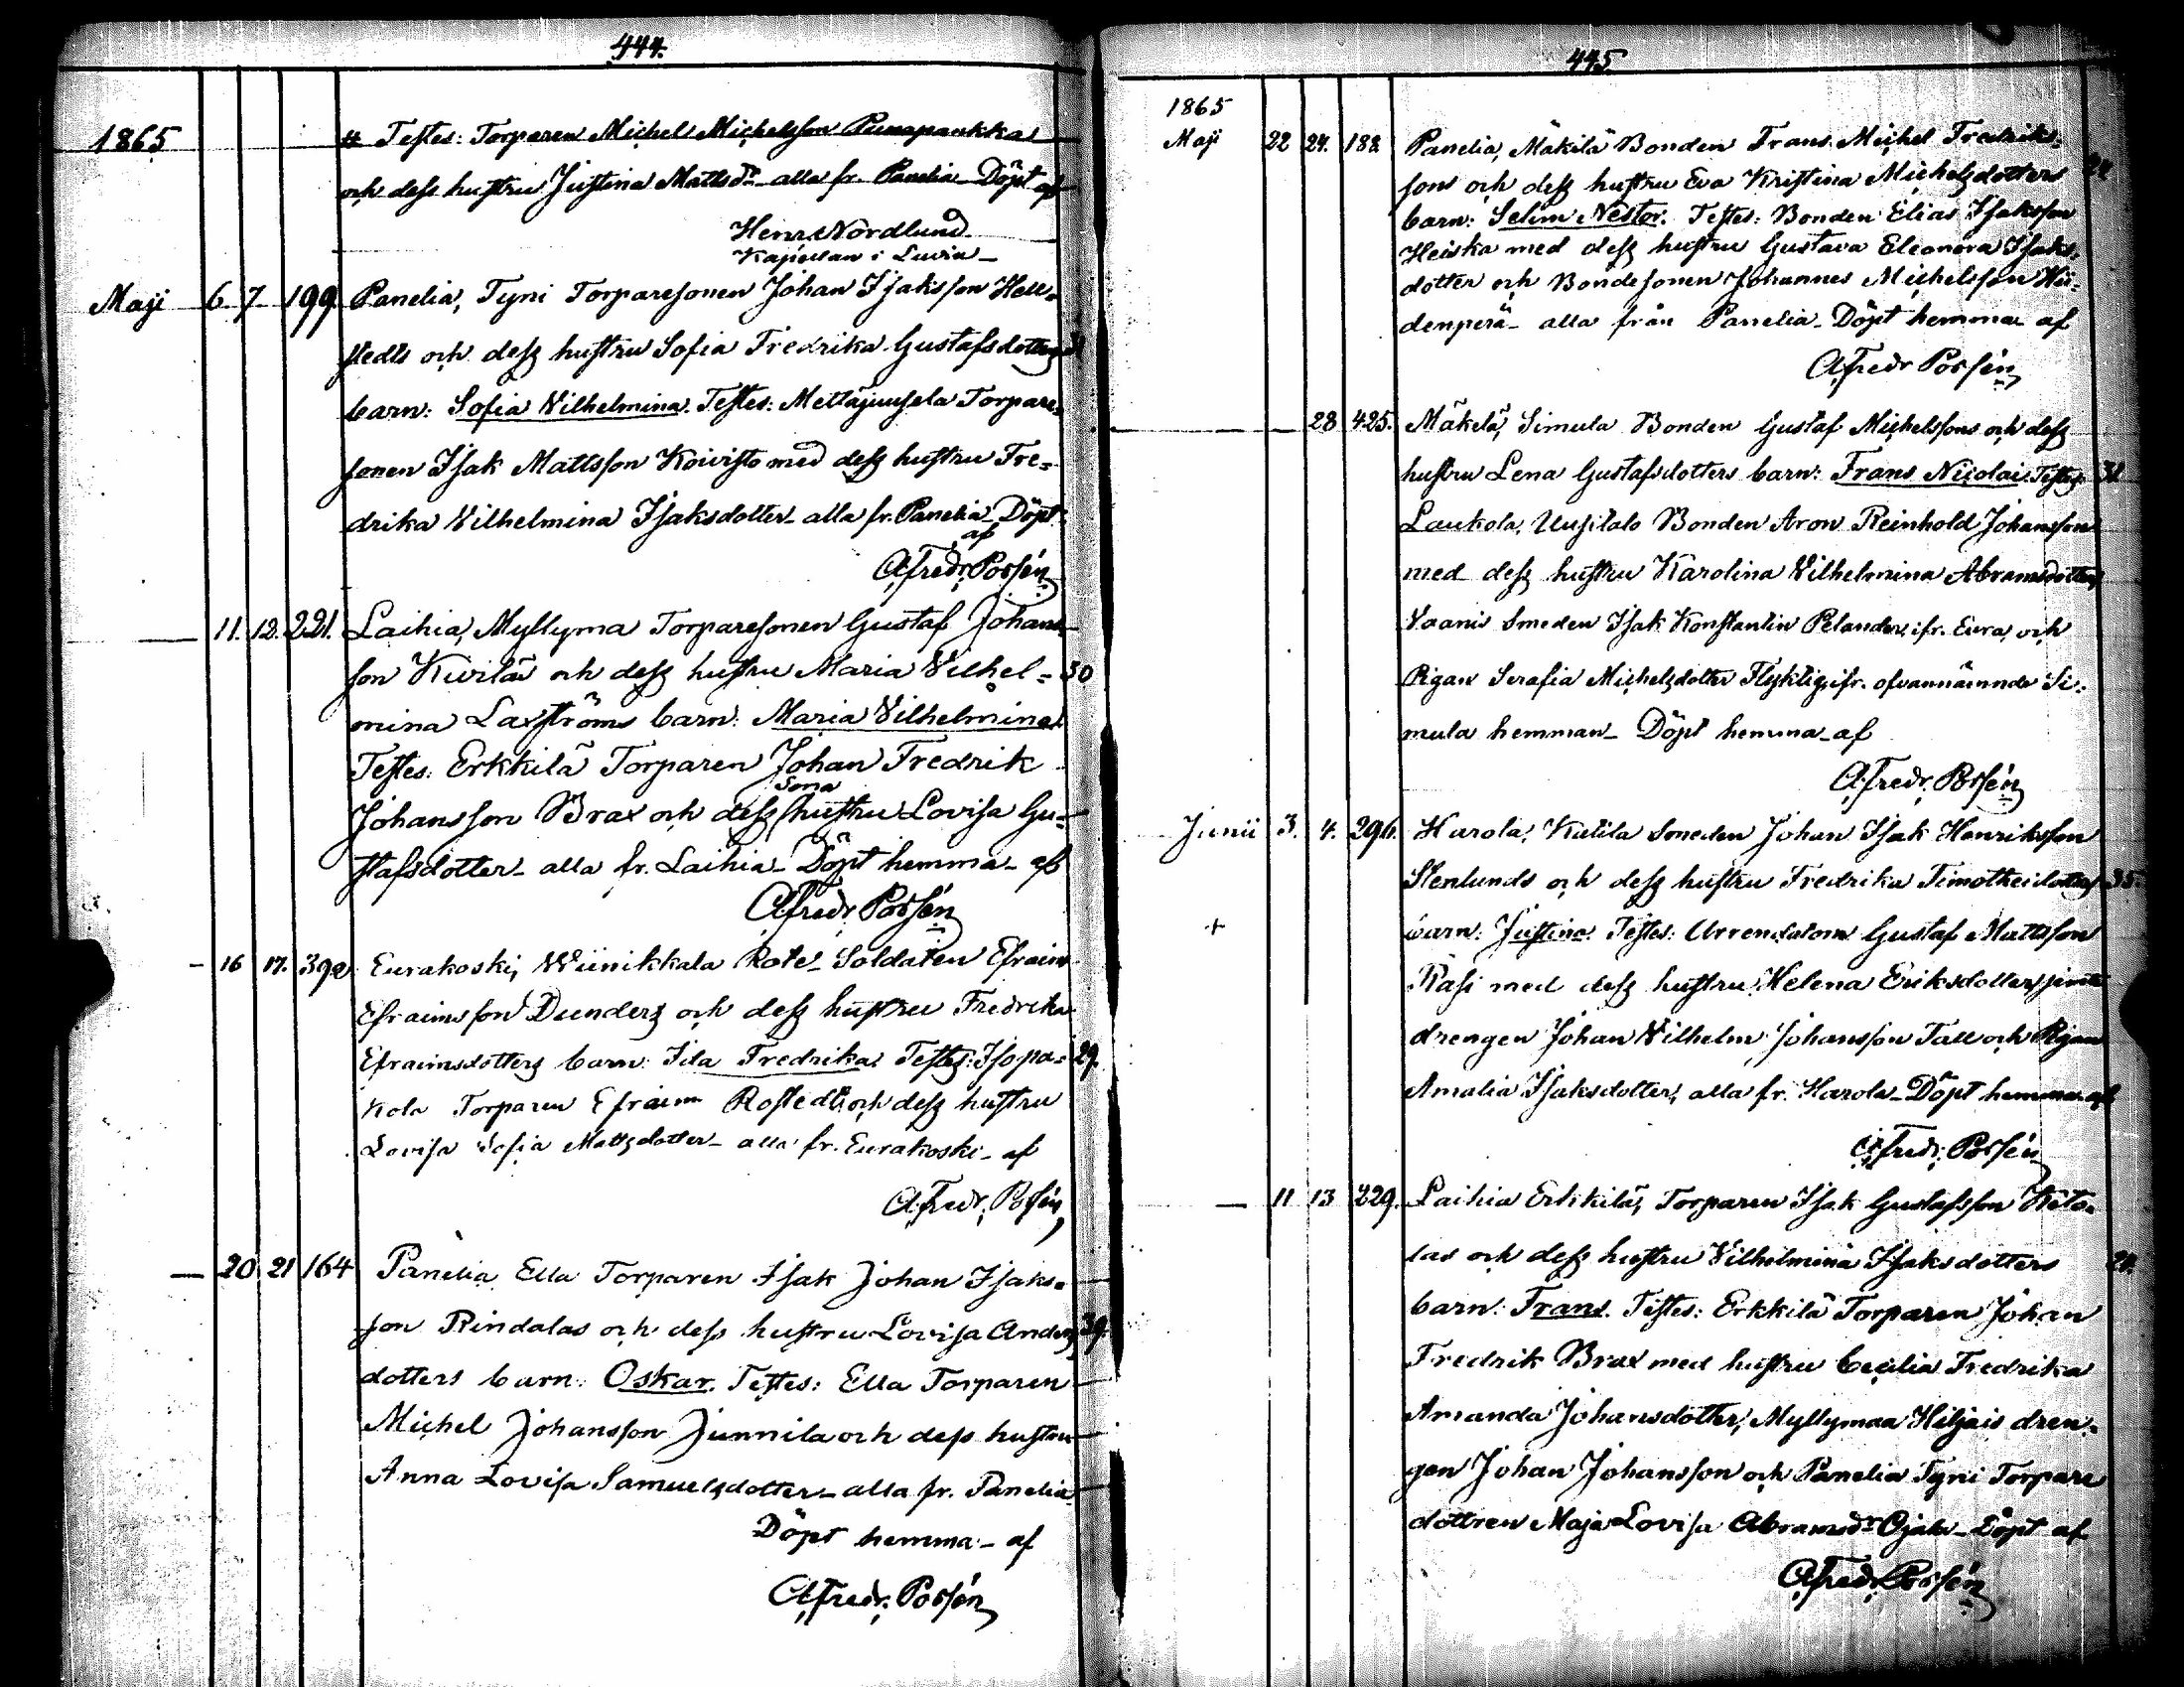 444.
1865
# Testes: Torparen Michel Michelsson Punapaukka
och dess hustru Justina Mattsdr alla fr. Panelia Döpt af
Henr. Nordlund
Kapellan i Luvia
Maji 6. 7. 199 Panelia, Tyni Torparesonen Johan Isaksson Hell=
stedts och dess hustru Sofia Fredrika Gustafsdotters 31
barn: Sofia Vilhelmina. Testes: Mettäjuusela Torpare=
sonen Isak Mattsson Koivisto med dess hustru Fre=
drika Vilhelmina Isaksdotter alla fr. Panelia Döpt
af
A. Fredr. Possén
11. 12. 221. Laihia, Myllymaa Torparesonen Gustaf Johans=
son Kivilä och dess hustru Maria Vilhel= 30
mina Laxströms barn: Maria Vilhelmina
Testes: Erkkilä Torparen Johan Fredrik
Johansson Brax och dess sona hustru Lovisa Gu=
stafsdotter alla fr. Laihia Döpt hemma af
A. Fredr. Possén
16 17. 392 Eurakoski, Wiinikkala Rote Soldaten Efraim
Efraimsson Dunders och dess hustru Fredrika
Efraimsdotters barn: Ida Fredrika. Testes: Isopa= 29.
kola Torparen Efraim Rostedt och dess hustru
Lovisa Sofia Mattsdotter alla fr. Eurakoski af
A. Fredr. Possén
20 21 164 Panelia Ella Torparen Isak Johan Isaks=
son Rindalas och dess hustru Lovisa Anders 39.
dotters barn: Oskar. Testes: Ella Torparen
Michel Johansson Junnila och dess hustru
Anna Lovisa Samuelsdotter alla fr. Panelia
Döpt hemma af
A. Fredr. Possén
445
1865
Maji 22 24. 188 Panelia, Mäkilä Bonden Frans Michel Fredriks=
sons och dess hustru Eva Kristina Michelsdotters
barn: Selim Nestor. Testes: Bonden Elias Isaksson
Heiska med dess hustru Gustava Eleonora Isaks=
dotter och Bondesonen Johannes Michelsson Hii=
denperä alla från Panelia Döpt hemma af
A. Fredr Possén
28 425. Mäkelä, Simula Bonden Gustaf Michelssons och dess
hustru Lena Gustafsdotters barn: Frans Nicolai. Testes:
Laukola, Uusitalo Bonden Aron Reinhold Johansson
med dess hustru Karolina Vilhelmina Abramsdotter,
Vaanii Smeden Isak Konstantin Pelander ifr. Eura, och
Pigan Serafia Michelsdotter Flyktig ifr. ofvannämnde Si=
mula hemman Döpt hemma af
A. Fredr. Possén
Junii 3. 4. 296. Harola, Kutila Smeden Johan Isak Henriksson
Stenlunds och dess hustru Fredrika Timotheidotters 35.
+ barn: Justina. Testes: Arrendatorn Gustaf Mattsson
Rasi med dess hustru Helena Eriksdotter jemte
drengen Johan Vilhelm Johansson Tall och Pigan
Amalia Isaksdotter, alla fr. Harola Döpt hemma af
A. Fredr. Possén
11 13 229. Laihia Erkkilä, Torparen Isak Gustafsson Keto=
las och dess hustru Vilhelmina Isaksdotters
barn: Frans. Testes: Erkkilä Torparen Johan
Fredrik Brax med hustru Cecilia Fredrika
Amanda Johansdotter, Myllymaa Hiljais dren=
gen Johan Johansson och Panelia Tyni Torpare
dottren Maja Lovisa Abramsdr Ojala Döpt af
A. Fredr. Possén